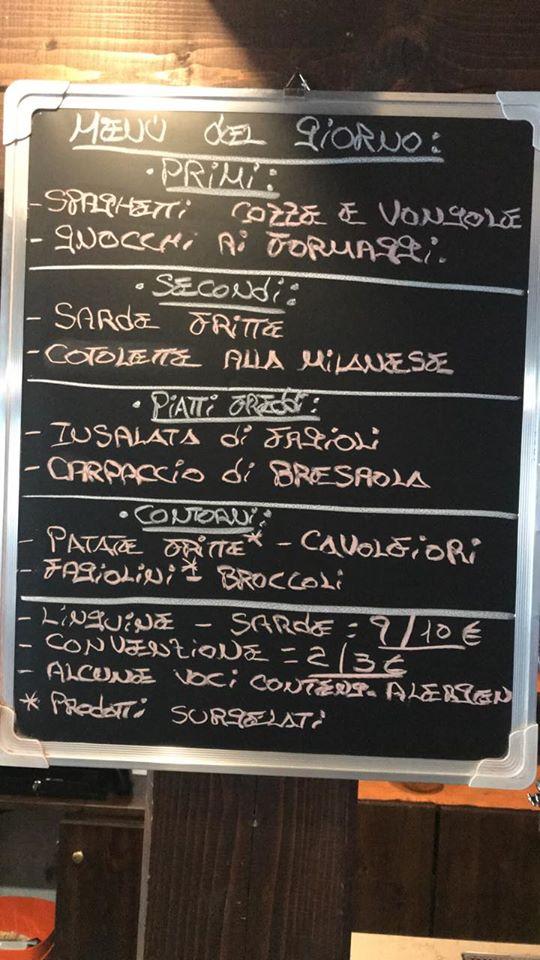 MENÙ DEL GIORNO:
• PRIMI:
- SPAGHETTI COZZE E VONGOLE
- GNOCCHI AI FORMAGGI.
• SECONDI:
- SARDE FRITTE
- COTOLETTE ALLA MILANESE
• PIATTI FREDDI:
- INSALATA di FAGIOLI
- CARPACCIO di BRESAOLA
• CONTORNI:
- PATATE FRITTE* - CAVOLFIORI
- FAGIOLINI* - BROCCOLI
- LINGUINE - SARDE = 9/10 €
- CONVENZIONE = 2/3 €
- ALCUNE VOCI CONTENG. ALERGEN
* Prodotti SURGELATI